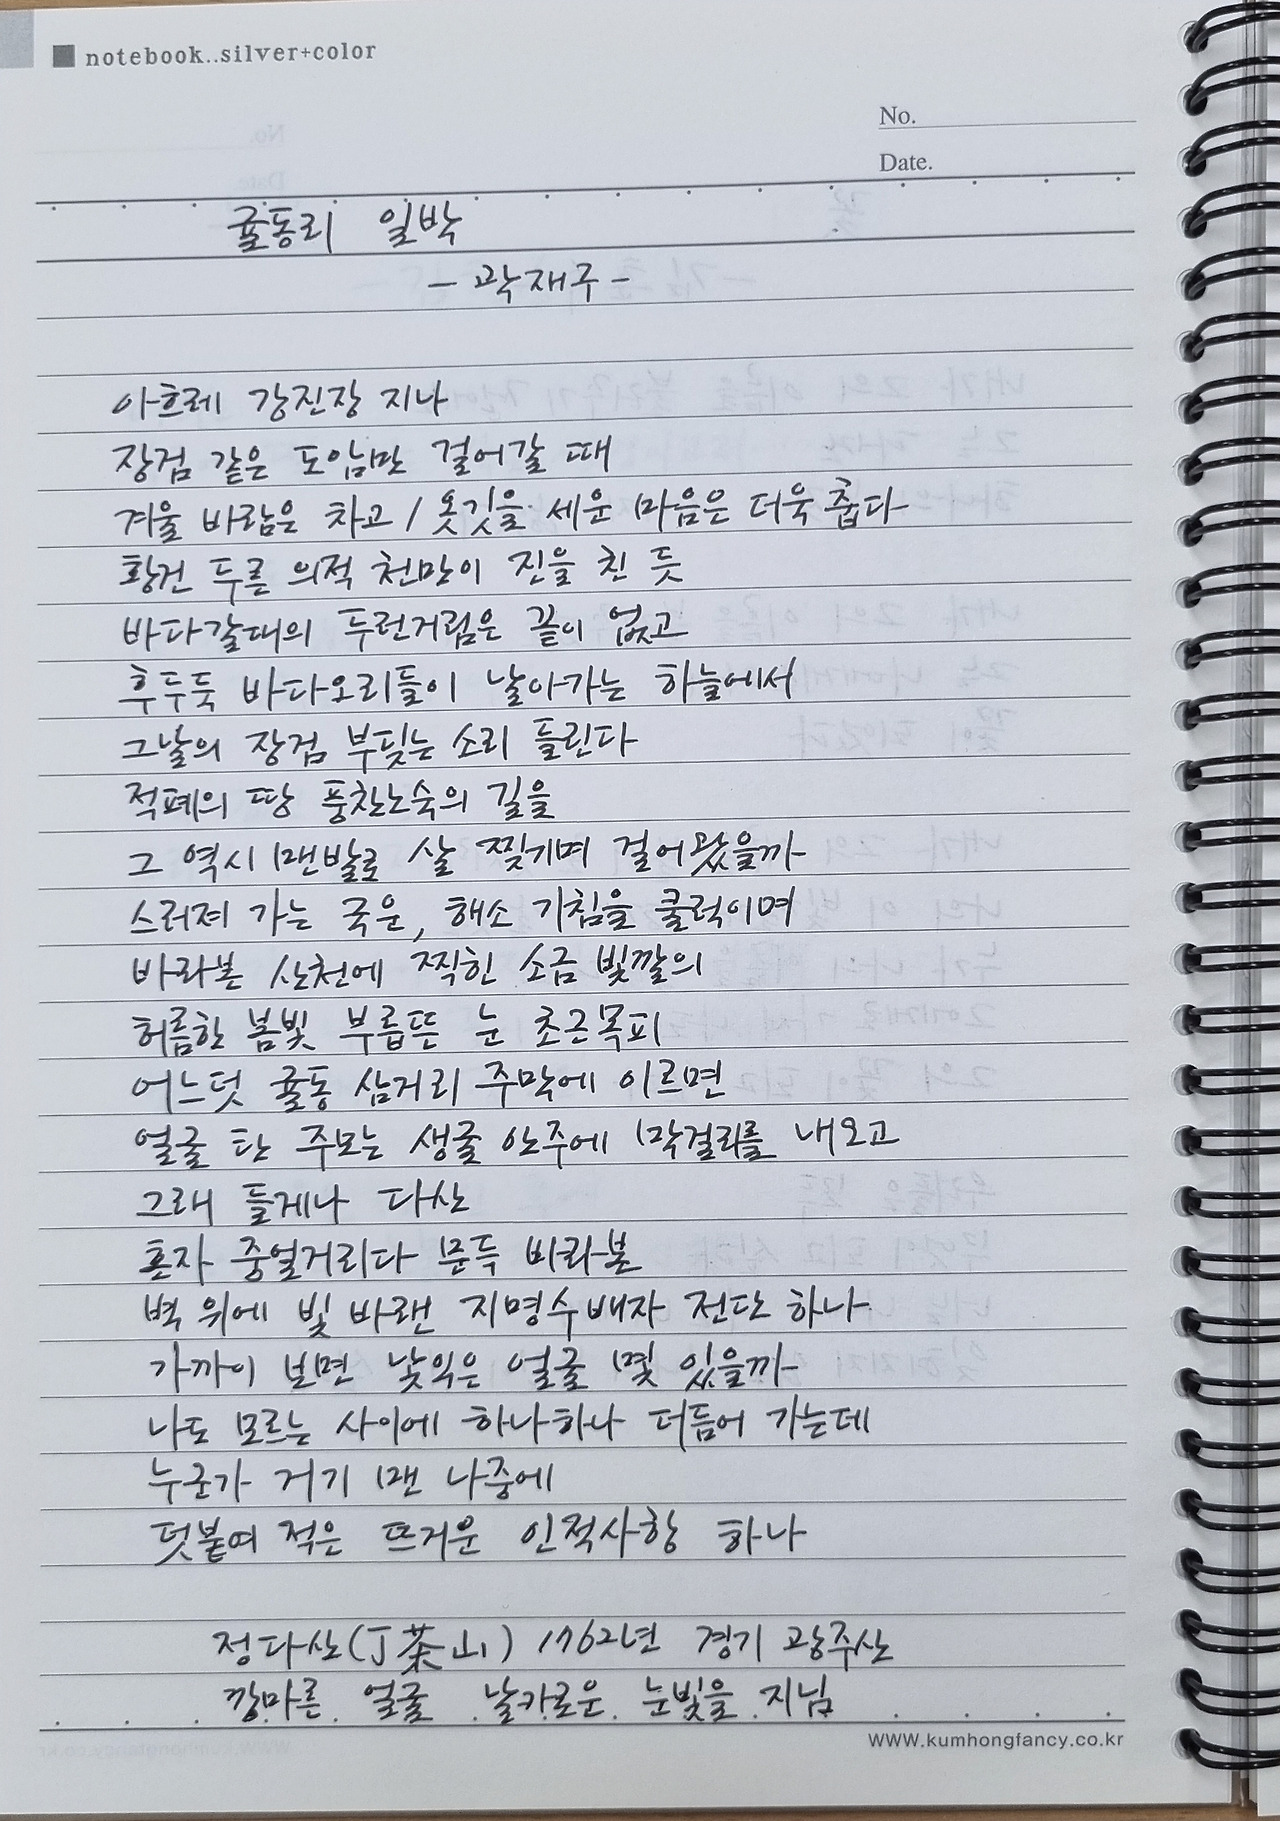 notebook..silver+color
No.
Date.
귤동리 일박
- 곽재구 -
아흐레 강진장 지나
장검 같은 도암만 걸어갈 때
겨울 바람은 차고 / 옷깃을 세운 마음은 더욱 춥다
황건 두른 의적 천만이 진을 친 듯
바다갈대의 두런거림은 끝이 없고
후두둑 바다오리들이 날아가는 하늘에서
그날의 장검 부딪는 소리 들린다
적폐의 땅 풍찬노숙의 길을
그 역시 맨발로 살 찢기며 걸어왔을까
스러져 가는 국운, 해소 기침을 쿨럭이며
바라본 산천에 찍힌 소금 빛깔의
허름한 봄빛 부릅뜬 눈 초근목피
어느덧 귤동 삼거리 주막에 이르면
얼굴 탄 주모는 생굴 안주에 막걸리를 내오고
그래 들게나 다산
혼자 중얼거리다 문득 바라본
벽 위에 빛 바랜 지명수배자 전단 하나
가까이 보면 낯익은 얼굴 몇 있을까
나도 모르는 사이에 하나하나 더듬어 가는데
누군가 거기 맨 나중에
덧붙여 적은 뜨거운 인적사항 하나
정다산(丁茶山) 1762년 경기 광주산
깡마른 얼굴 날카로운 눈빛을 지님
www.kumhongfancy.co.kr